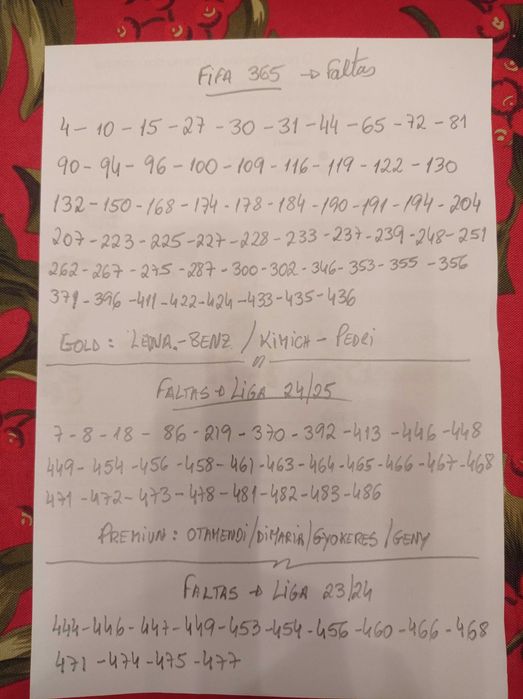 FIFA 365 → Faltas
4 - 10 - 15 - 27 - 30 - 31 - 44 - 65 - 72 - 81
90 - 94 - 96 - 100 - 109 - 116 - 119 - 122 - 130
132 - 150 - 168 - 174 - 178 - 184 - 190 - 191 - 194 - 204
207 - 223 - 225 - 227 - 228 - 233 - 237 - 239 - 248 - 251
262 - 267 - 275 - 287 - 300 - 302 - 346 - 353 - 355 - 356
371 - 396 - 411 - 422 - 424 - 433 - 435 - 436
GOLD: LEWA. - BENZ / KIMICH - PEDRI
FALTAS → LIGA 24/25
7 - 8 - 18 - 86 - 219 - 370 - 392 - 413 - 446 - 448
449 - 454 - 456 - 458 - 461 - 463 - 464 - 465 - 466 - 467 - 468
471 - 472 - 473 - 478 - 481 - 482 - 483 - 486
PREMIUN: OTAMENDI / DIMARIA / GYOKERES / GENY
FALTAS → LIGA 23/24
444 - 446 - 447 - 449 - 453 - 454 - 456 - 460 - 466 - 468
471 - 474 - 475 - 477